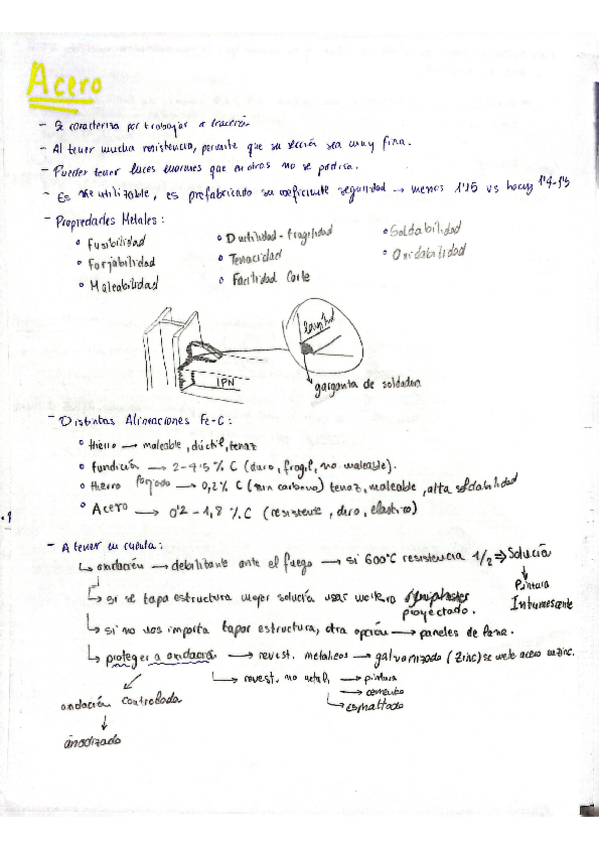 Acero
- Se caracteriza por trabajar a tracción
- Al tener mucha resistencia, permite que su sección sea muy fina.
- Pueden tener luces enormes que en otros no se podría.
- Es reutilizable, es prefabricado su coeficiente seguridad → menos 1'15 vs 1'4-1'5
- Propiedades Metales:
° Fusibilidad ° Ductilidad - fragilidad ° Soldabilidad
° Forjabilidad ° Tenacidad ° Oxidabilidad
° Maleabilidad ° Facilidad Corte
longitud
IPN
garganta de soldadura
- Distintas Alineaciones Fe-C:
° Hierro → maleable, dúctil, tenaz
° Fundición → 2-4.5% C (duro, fragil, no maleable).
° Hierro forjado → 0,2% C (sin carbono) tenaz, maleable, alta soldabilidad
° Acero → 0'2 - 1,8 % C (resistente, duro, elastico)
- A tener en cuenta:
↳ oxidación → debilitante ante el fuego → si 600°C resistencia 1/2 ⇒ Solución
↓
Pintura
Intumescente
↳ si se tapa estructura mejor solución usar proyectado.
↳ si no nos importa tapar estructura, otra opción → paneles de lana.
↳ proteger a oxidación → revest. metalicos → galvanizado (Zinc) se mete acero en zinc.
↳ revest. no metal → pintura
→ cemento
↳ esmaltado
oxidación controlada
↓
anodizado